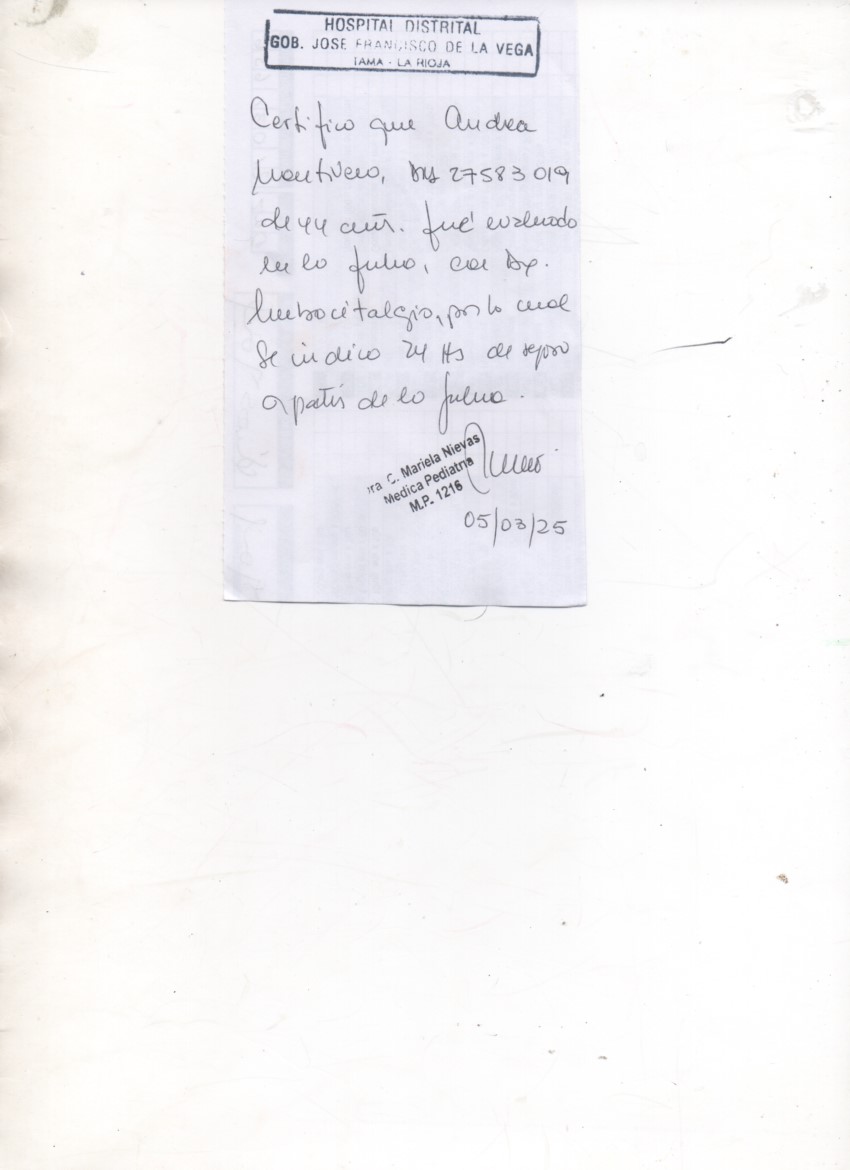 HOSPITAL DISTRITAL
GOB. JOSE FRANCISCO DE LA VEGA
TAMA - LA RIOJA
Certifico que Andrea
Montivero, DNI 27583019
de 44 años. fué evaluado
en la fecha, con Dx.
lumbocitalgia, por lo cual
Se indica 24 Hs de reposo
a partir de la fecha.
Dra. C. Mariela Nievas
Medica Pediatra
M.P. 1216
05/03/25